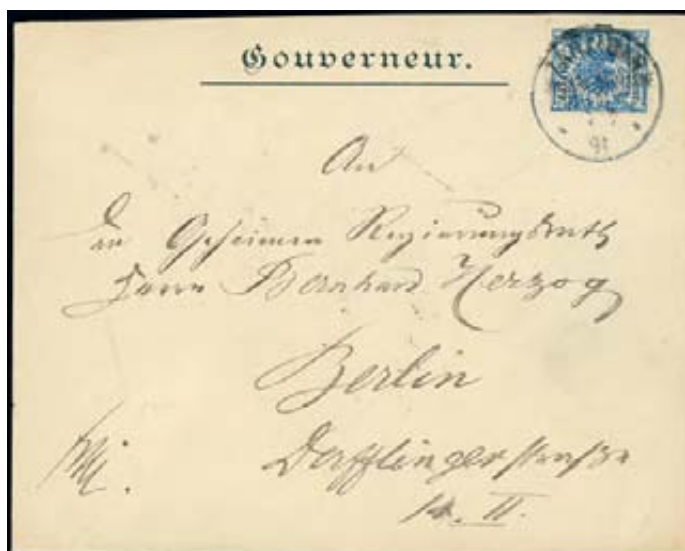 Gouverneur.
91
An
den Geheimen Regierungsrath
Herrn Bernhard Herzog
Berlin
Derfflingerstraße
II.